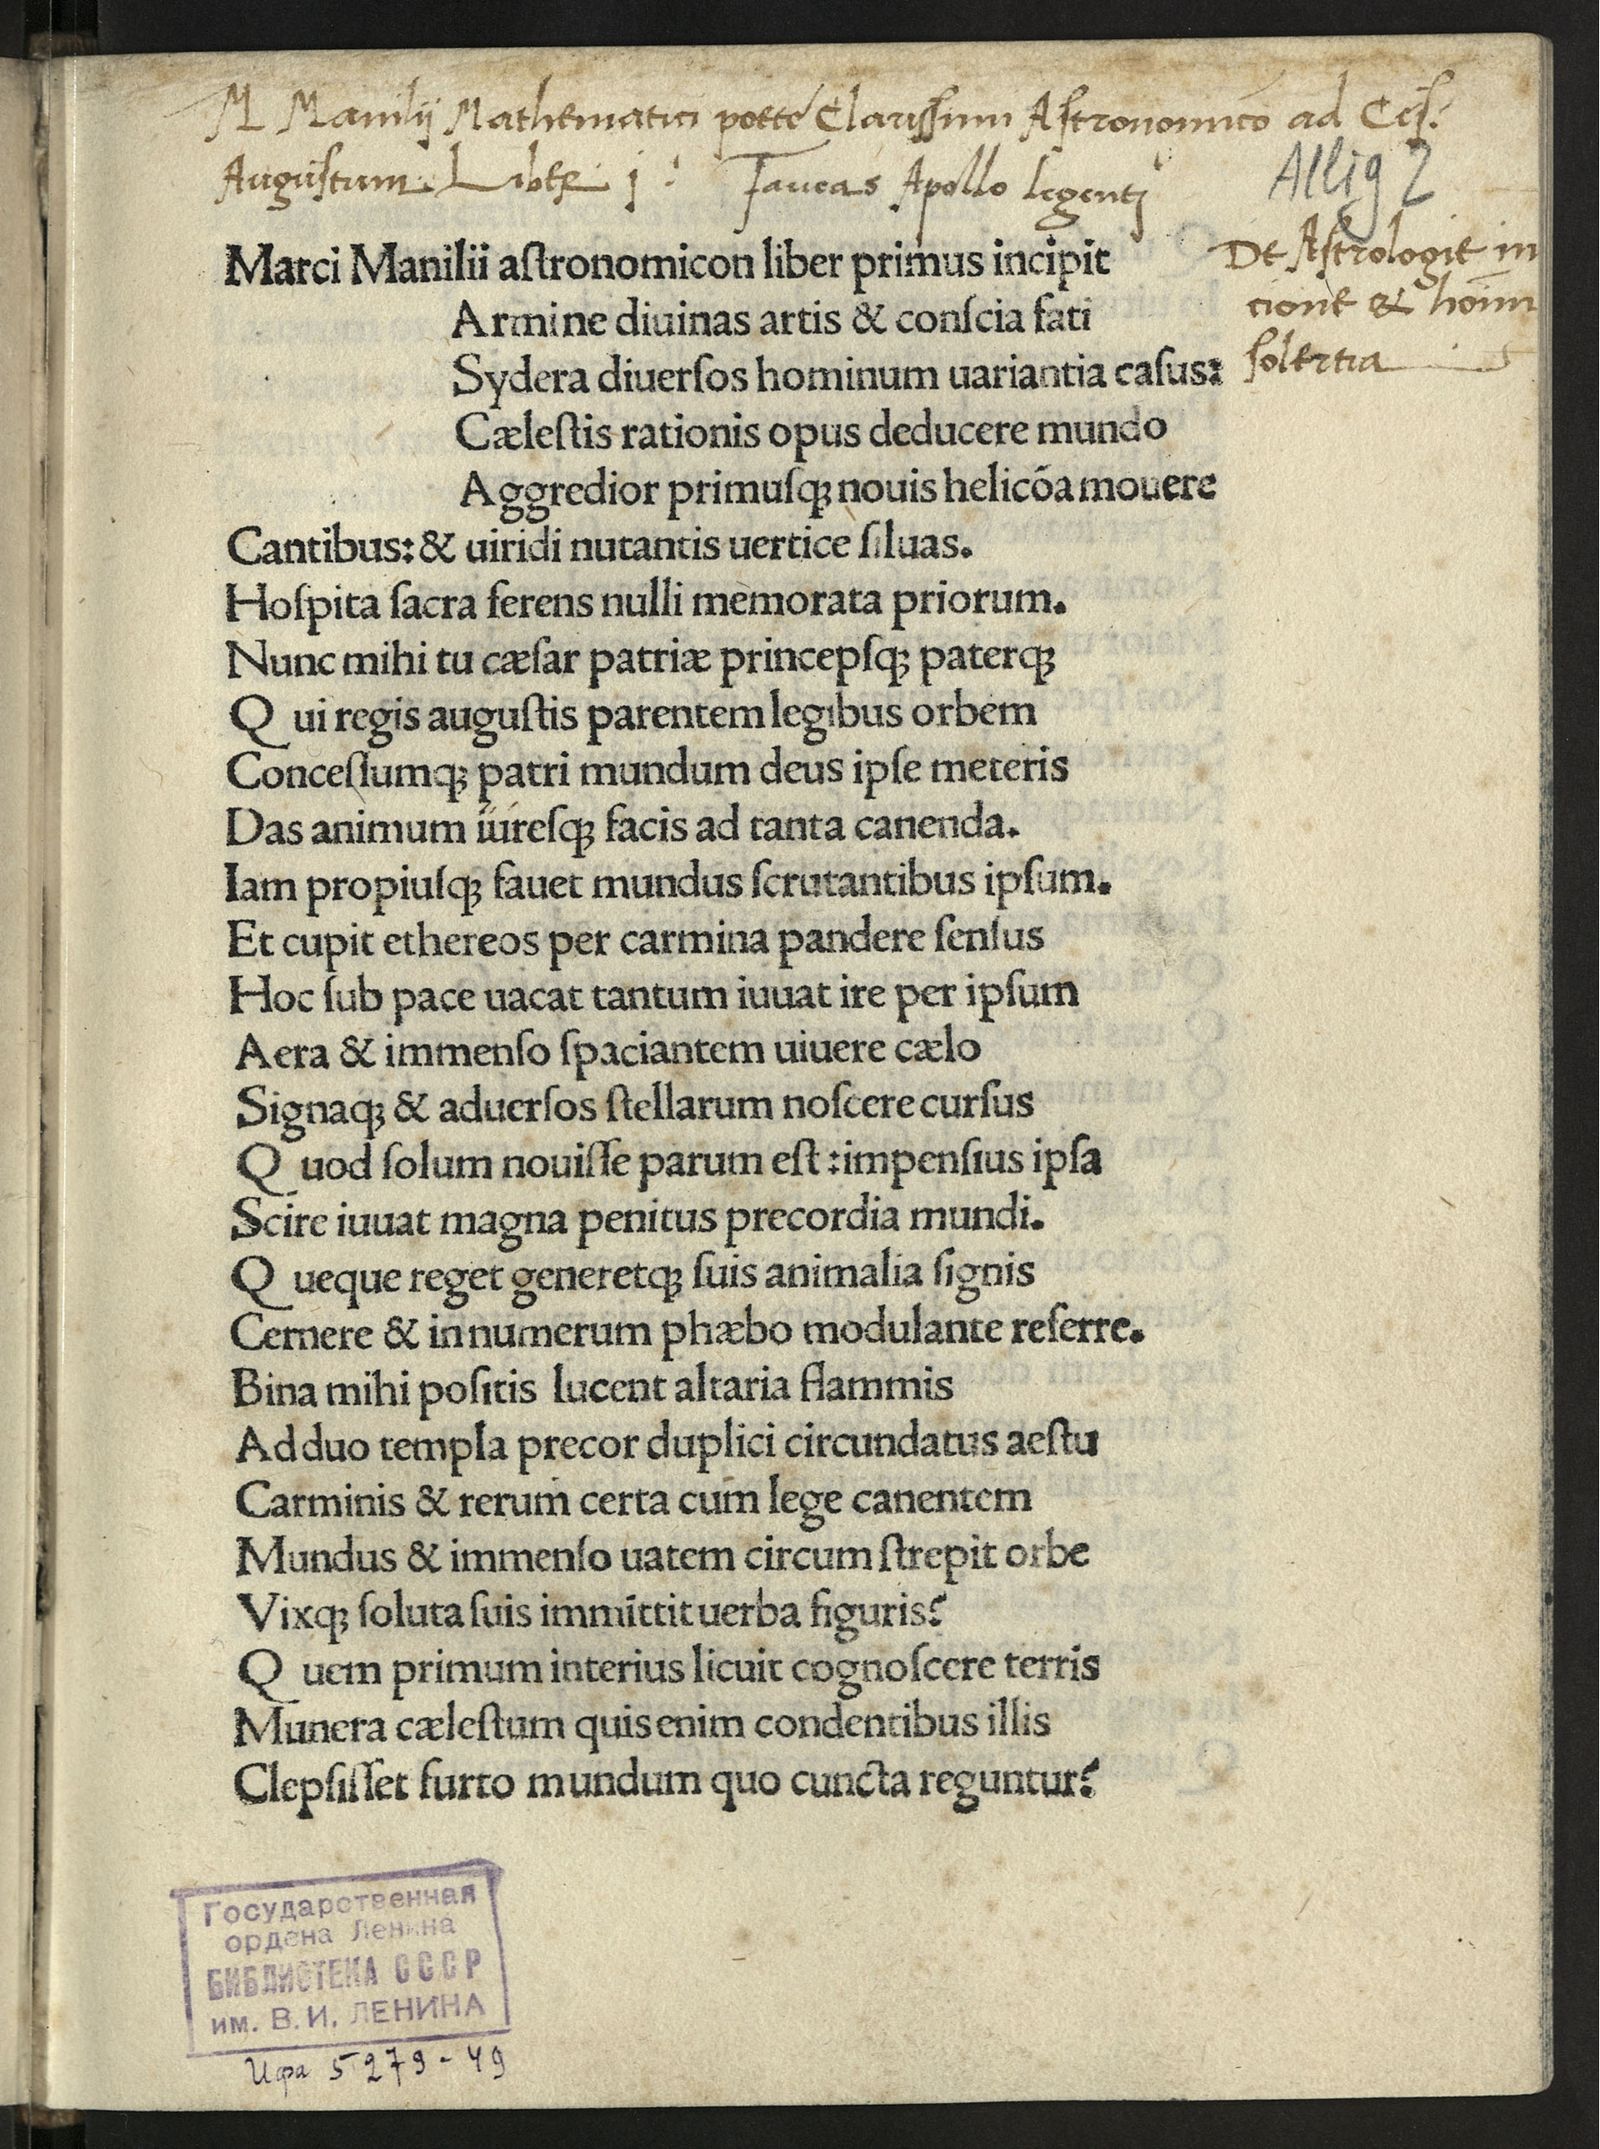 M Manilij Mathematici poete Clarissimi Astronomico ad Ces.
Augustum Liber j : Faueas Apollo legentj
Allig 2
De Astrologie in
cione & homi
solertia
Marci Manilii aſtronomicon liber primus incipit
Armine diuinas artis & conſcia fati
Sydera diuerſos hominum uariantia caſus:
Cæleſtis rationis opus deducere mundo
Aggredior primuſq; nouis helicōa mouere
Cantibus: & uiridi nutantis uertice ſiluas.
Hoſpita ſacra ferens nulli memorata priorum.
Nunc mihi tu cæſar patriæ princepſq; paterq;
Q ui regis auguſtis parentem legibus orbem
Conceſſumq; patri mundum deus ipſe meteris
Das animum iiireſq; facis ad tanta canenda.
Iam propiuſq; fauet mundus ſcrutantibus ipſum.
Et cupit ethereos per carmina pandere ſenſus
Hoc ſub pace uacat tantum iuuat ire per ipſum
Aera & immenſo ſpaciantem uiuere cælo
Signaq; & aduerſos ſtellarum noſcere curſus
Q uod ſolum nouiſſe parum eſt : impenſius ipſa
Scire iuuat magna penitus precordia mundi.
Q ueque reget generetq; ſuis animalia ſignis
Cernere & in numerum phæbo modulante referre.
Bina mihi poſitis lucent altaria flammis
Ad duo templa precor duplici circundatus aeſtu
Carminis & rerum certa cum lege canentem
Mundus & immenſo uatem circum ſtrepit orbe
Vixq; ſoluta ſuis immittit uerba figuris?
Q uem primum interius licuit cognoſcere terris
Munera cæleſtum quis enim condentibus illis
Clepſiſſet furto mundum quo cuncta reguntur?
Государственная
ордена Ленина
БИБЛИОТЕКА СССР
им. В. И. ЛЕНИНА
5279-49